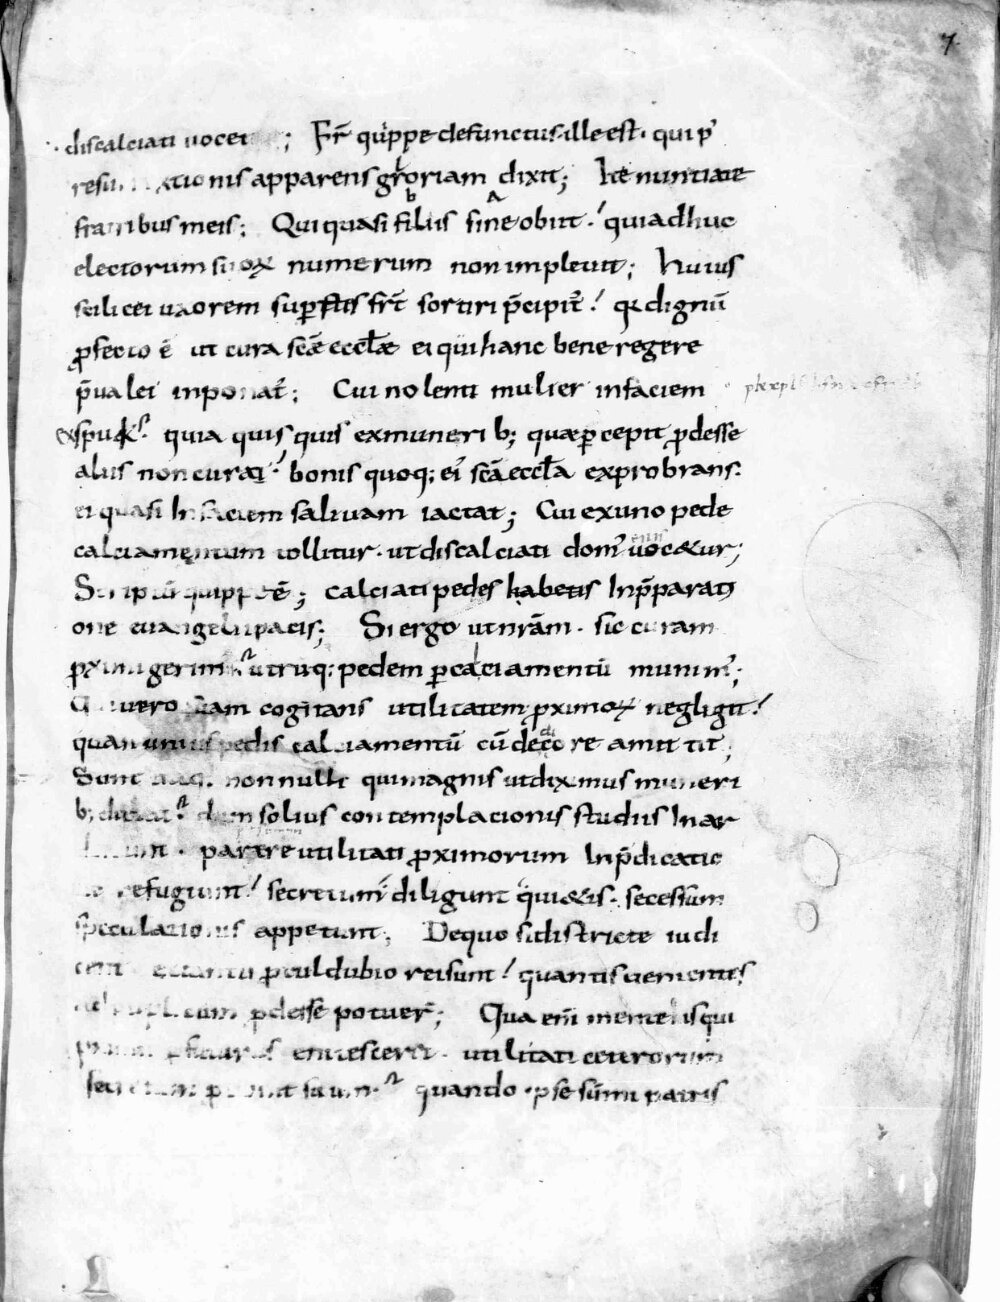 7.
discalciati vocet ; Fr̄ quippe defunctus ille est · qui p'
resu tionis apparens groriam dixit; Ite nuntiate
fratribus meis; Qui quasi filiis sine obiit · quiadhuc
electorum suoꝝ numerum non implevit; huius
scilicet uxorem sup̱stis frt̄ sortiri p̄cipit̄ qd dignū
ꝓfecto ē ut cura scǣ eccl̄æ ei qui hanc bene regere
p̄valet inponat̄; Cui nolenti mulier infaciem
exspuit quia quisquis exmuneri b; quæ p̱cepit ꝓdesse
aliis non curat · bonis quoq; ei' scā eccl̄a exprobrans ·
ei quasi Infaciem salivam iactat; Cui exuno pede
calciamentum tollitur · ut discalciati dom' voc&ur;
Scriptū quippe ē; calciati pedes habetis Inp̄parati
one evangelii pacis; Si ergo ut nr̄am · sic curam
ꝓximi gerim' utrūq; pedem p̱ calciamentū munim';
Qui vero suam cogitans utilitatem ꝓximoꝝ negligit
quasi unius pedis calciamentū cū decore amittit;
Sunt itaq; non nulli qui magnis ut diximus muneri
b; ditat' dum solius contemplacionis studiis Inar
parere utilitati ꝓximorum Inp̄dicatio
refugiunt secretum diligunt qui&is · secessum
speculationis appetunt; Dequo si districte iudi
cent ꝓculdubio rei sunt quantis vementes
cum ꝓdesse potuer̄; Qua eni mente is qui
enitesceret · utilitati ceterorum
secretum quando ipse sūmi patris